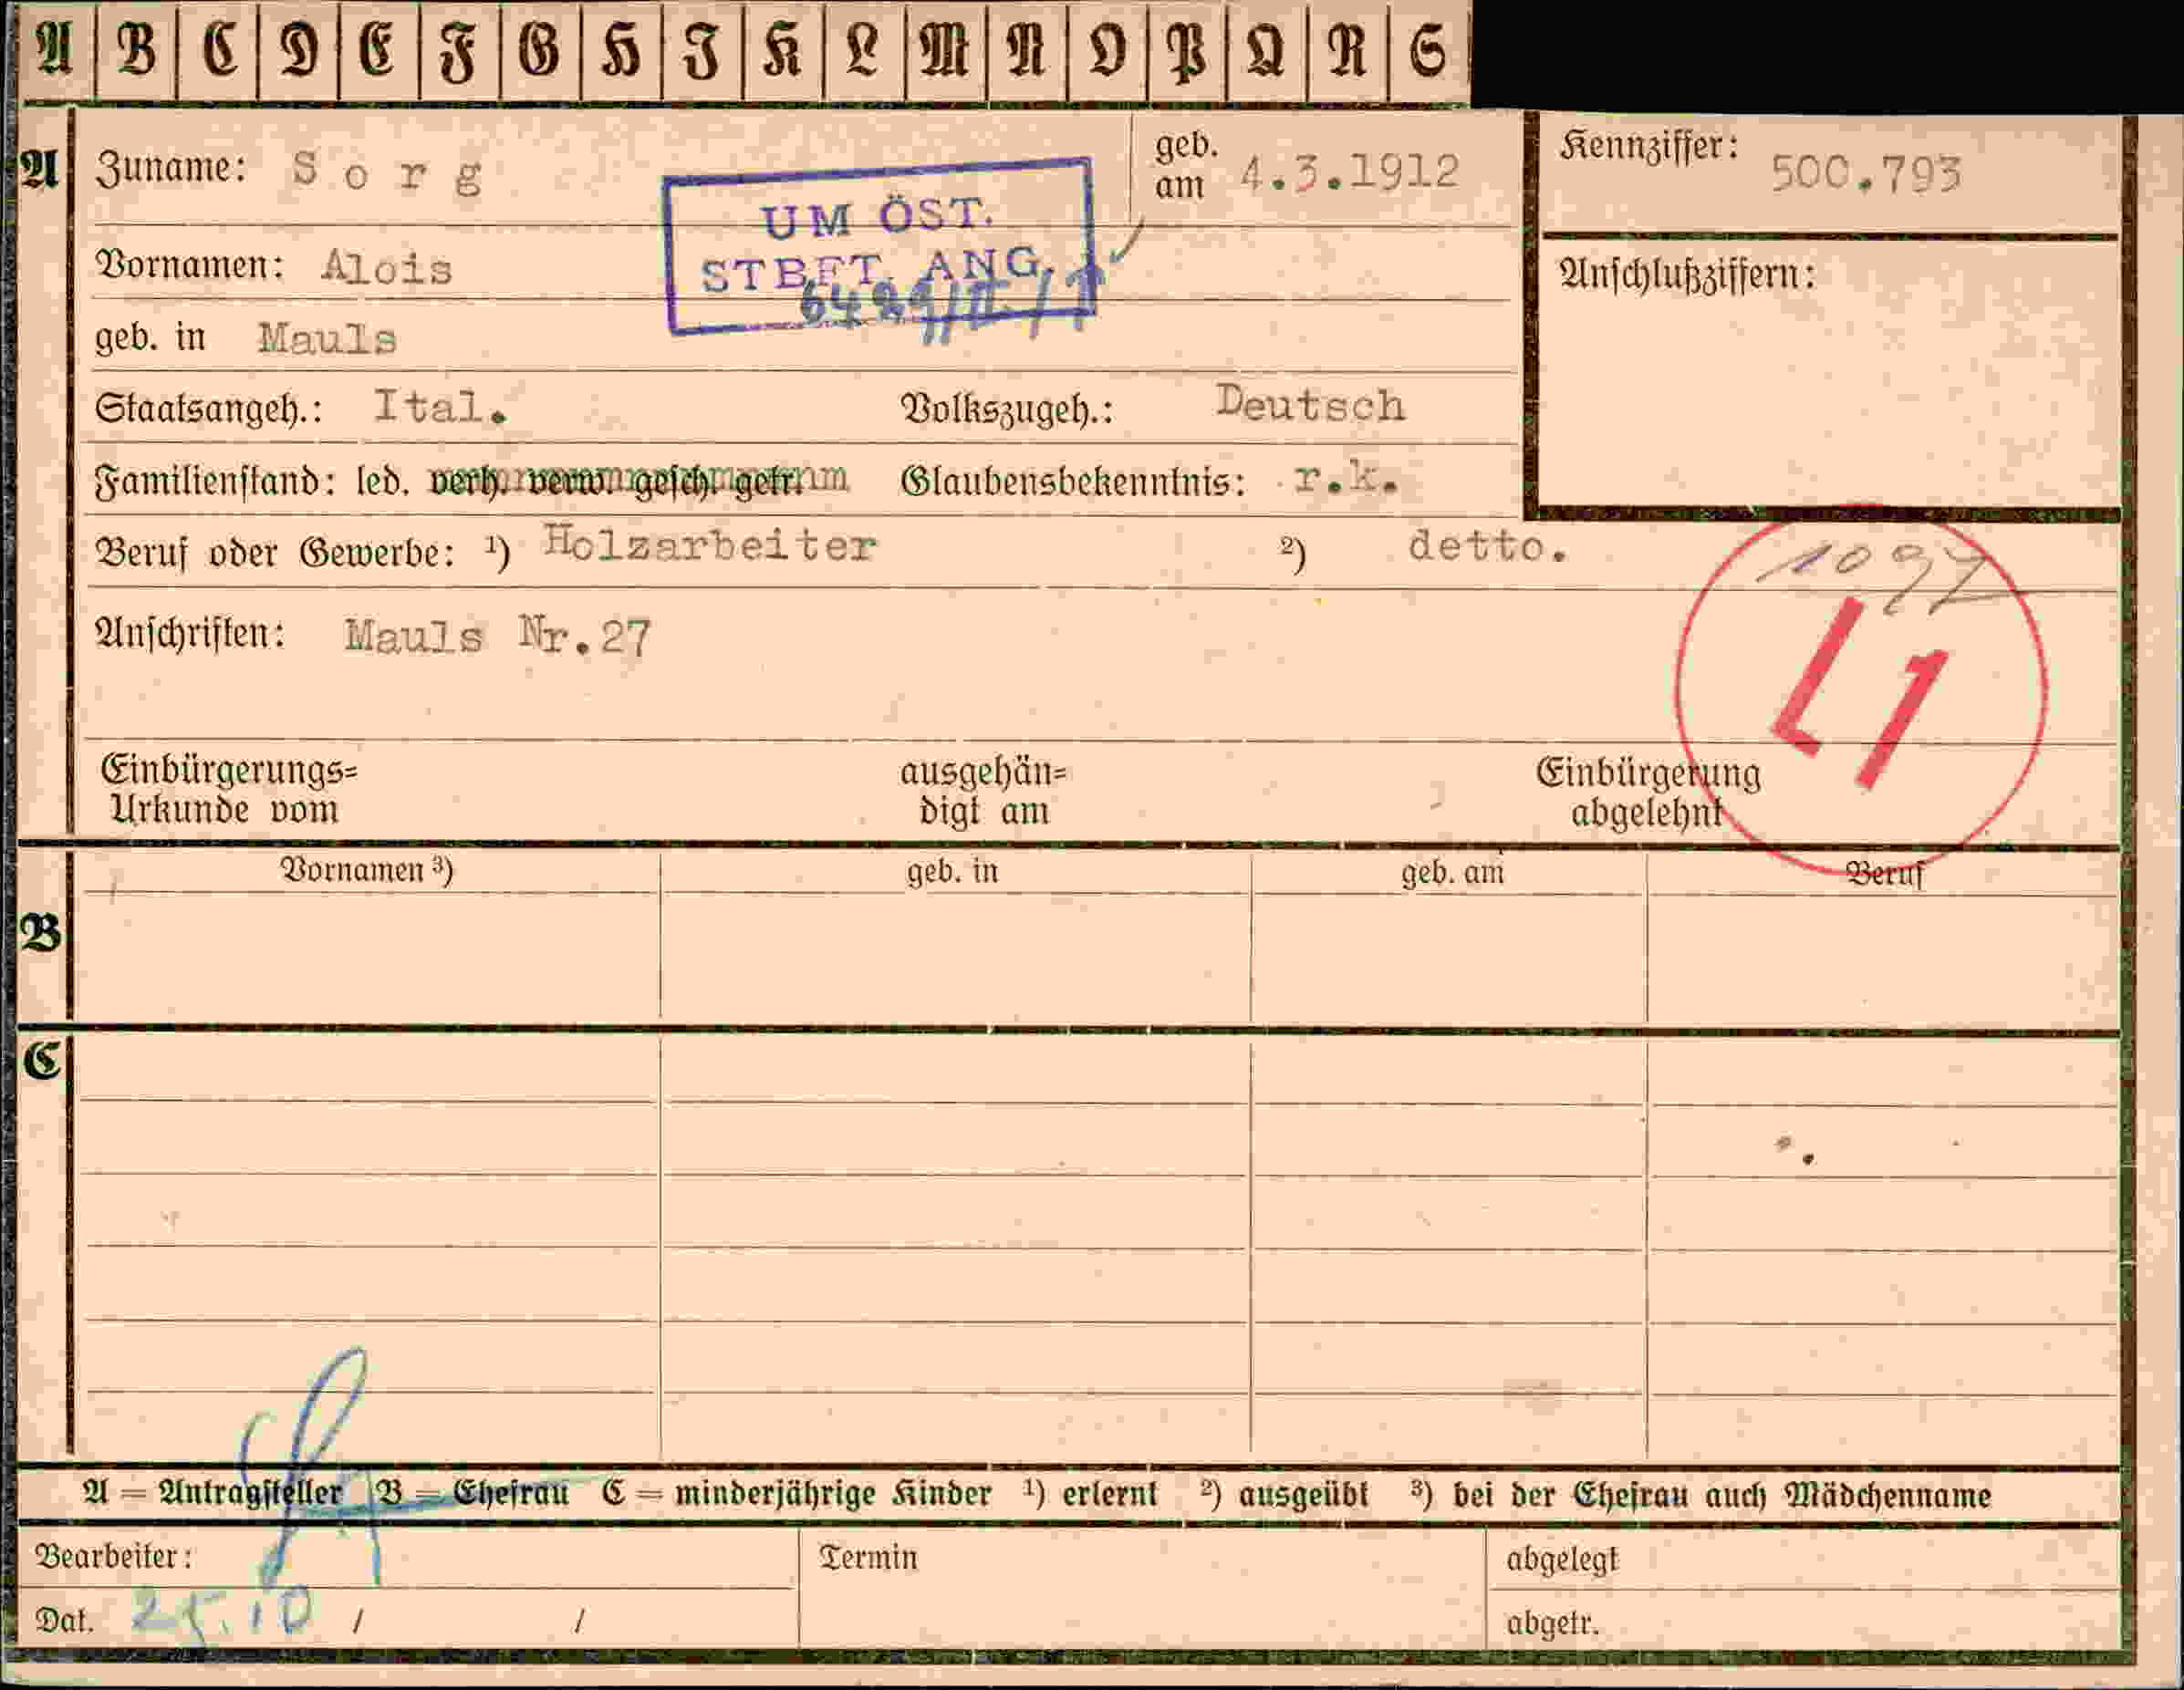 A B C D E F G H J K L M N O P Q R S
A Zuname: Sorg geb. am 4.3.1912 Kennziffer: 500.793
UM ÖST.
STBFT. ANG.
Vornamen: Alois Anschlußziffern:
geb. in Mauls
Staatsangeh.: Ital. Volkszugeh.: Deutsch
Familienstand: led. verh. verw. gesch. getr. Glaubensbekenntnis: r.k.
Beruf oder Gewerbe: ¹) Holzarbeiter ²) detto.
1097
L1
Anschriften: Mauls Nr.27
Einbürgerungs= ausgehän= Einbürgerung
Urkunde vom digt am abgelehnt
Vornamen ³) geb. in geb. am Beruf
B
C
A = Antragsteller B = Ehefrau C = minderjährige Kinder ¹) erlernt ²) ausgeübt ³) bei der Ehefrau auch Mädchenname
Bearbeiter: Termin abgelegt
Dat. 25.10 / / abgetr.